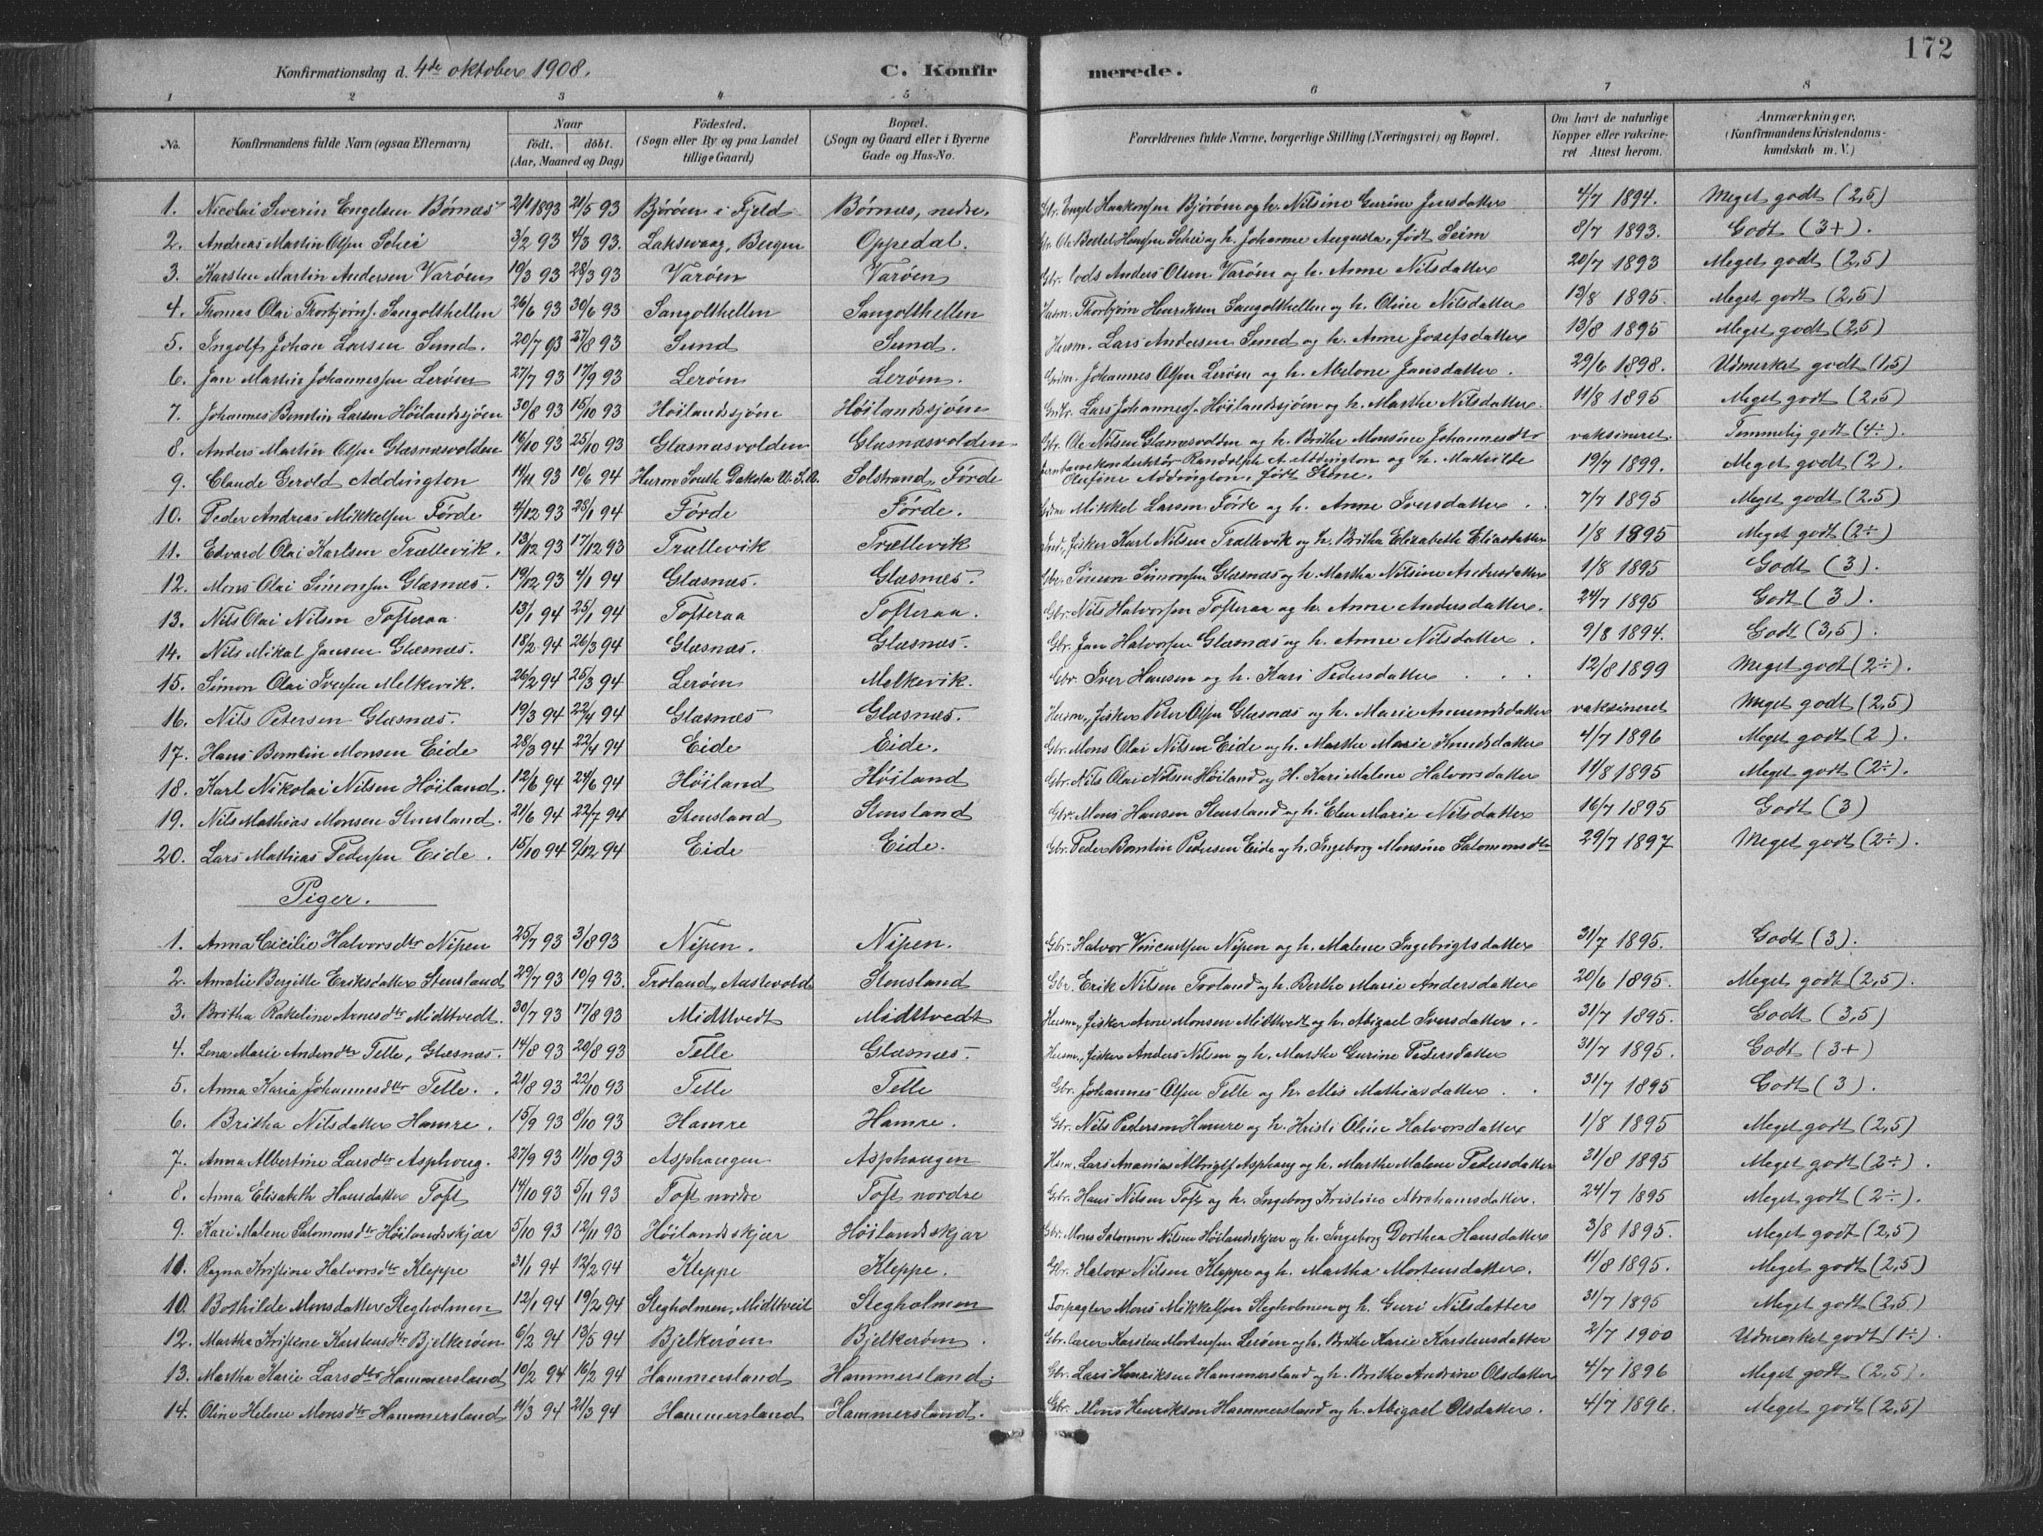 172
Konfirmationsdag d. 4de oktober 1908. C. Konfirmerede.
1 2 3 4 5 6 7 8
No. Konfirmandens fulde Navn (ogsaa Efternavn) Naar født. døbt. (Aar, Maaned og Dag) Fødested. (Sogn eller By og paa Landet tillige Gaard) Bopæl. (Sogn og Gaard eller i Byerne Gade og Hus-No. Forældrenes fulde Navne, borgerlige Stilling (Næringsvei) og Bopæl. Om havt de naturlige Kopper eller vakcineret Attest herom. Anmærkninger, (Konfirmandens Kristendomskundskab m. V.)
1. Nicolai Severin Engelsen Børnæs 2/1 1893 21/5 93 Bjørøen i Fjeld Børnæs, nedre. Gbr. Engel Haakonsen Bjørøen og h. Nilsine Gurine Jensdatter 4/7 1894. Meget godt (2,5)
2. Andreas Martin Olsen Schei 3/2 93 4/3 93. Laksevaag, Bergen Oppedal. Gbr. Ole Bertel Hansen Schei og h. Johanne Augusta, født Seim 8/7 1893. Godt (3+).
3. Karsten Martin Andersen Varøen 19/3 93 28/3 93 Varøen Varøen Gbr. Anders Olsen Varøen og h. Anne Nilsdatter 20/7 1893 Meget godt (2,5)
4. Thomas Olai Thorbjørns. Sangolthellen 26/6 93 30/6 93 Sangolthellen Sangolthellen Husm. Thorbjørn Henriksen Sangolthellen og h. Oline Nilsdatter 13/8 1895. Meget godt (2,5)
5. Ingolf Johan Larsen Sund. 20/7 93 27/8 93 Sund Sund. Husm. Lars Andersen Sund og h. Anne Josefsdatter 13/8 1895 Meget godt (2,5)
6. Jan Martin Johannessen Lerøen 27/7 93 17/9 93 Lerøen Lerøen. Johannes Olsen Lerøen og h. Abelone Jansdatter. 29/6 1898. Udmerket godt (1,5)
7. Johannes Bentin Larsen Høilandssjøen 30/8 93 15/10 93 Høilandsjøen Høilandssjøen Lars Johannes. Høilandssjøen og h. Marthe Nilsdatter. 11/8 1895 Meget godt (2,5)
8. Anders Martin Olsen Glæsnæsvolden 16/10 93 25/10 93 Glæsnæsvolden Glæsnæsvolden Gbr. Ole Nilsen Glæsnæsvolden og h. Brithe Monsine Johannesdtr vaksineret. Temmelig godt (4÷).
9. Claude Gerold Addington 14/11 93 10/6 94 Huron South Dakota U.S.A. Solstrand, Førde Jernbanekonduktør Randolph A. Addington og h. Mathilde Olufine Addington, født Stene. 19/7 1899. Meget godt (2)
10. Peder Andreas Mikkelsen Førde 4/12 93 28/1 94 Førde Førde. Mikkel Larsen Førde og h. Anne Iversdatter . . 7/7 1895 Meget godt (2,5)
11. Edvard Olai Karlsen Trællevik. 13/12 93 17/12 93 Trællevik Trællevik Ind., fisker Karl Nilsen Trællevik og h. Britha Elizabeth Eliasdatter 1/8 1895 Meget godt (2÷)
12. Mons Olai Simonsen Glæsnæs. 19/12 93 4/1 94 Glæsnæs. Glæsnæs. Gbr. Simon Simonsen Glæsnæs og h. Martha Nilsine Andersdatter 1/8 1895 Godt (3).
13. Nils Olai Nilsen Tofteraa. 13/1 94 25/1 94 Tofteraa Tofteraa. Gbr. Nils Halvorsen Tofteraa og h. Anne Andersdatter. 24/7 1895 Godt (3).
14. Nils Mikal Jansen Glæsnæs. 18/2 94 26/3 94 Glæsnæs. Glæsnæs. Gbr. Jan Halvorsen Glæsnæs og h. Anne Nilsdatter . 9/8 1894. Godt (3,5).
15. Simon Olai Iversen Melkevik. 26/2 94 25/3 94 Lerøen Melkevik. Gbr. Iver Hansen og h. Kari Pedersdatter . . . 12/8 1899 Meget godt (2÷).
16. Nils Petersen Glæsnæs. 19/3 94 22/4 94 Glæsnæs Glæsnæs. Husm., fisker Peter Olsen Glæsnæs og h. Marie Amundsdatter vaksineret Meget godt (2,5)
17. Hans Bentin Monsen Eide 28/3 94 22/4 94 Eide Eide. Gbr. Mons Olai Nilsen Eide og h. Marthe Marie Knudsdatter 4/7 1896 Meget godt (2).
18. Karl Nikolai Nilsen Høiland. 12/6 94 24/6 94 Høiland Høiland Gbr. Nils Olai Nilsen Høiland og H. Kari Malene Halvorsdatter 11/8 1895 Meget godt (2÷).
19. Nils Mathias Monsen Stensland. 21/6 94 22/7 94 Stensland Stensland Gbr. Mons Hansen Stensland og h. Elen Marie Nilsdatter 16/7 1895 Godt (3)
20. Lars Mathias Pedersen Eide. 15/10 94 9/12 94 Eide Eide. Gbr. Peder Bentin Pedersen Eide og h. Ingeborg Monsine Salomonsdtr 29/7 1897 Meget godt (2÷).
Piger.
1. Anna Cicilie Halvorsdtr Nipen 25/7 93 3/8 93 Nipen. Nipen. Gbr. Halvor Vincentsen Nipen og h. Malene Ingebrigtsdatter 31/7 1895. Godt (3).
2. Amalie Bergitte Eriksdatter Stensland 29/7 93 10/9 93. Troland, Austevold Stensland Gbr. Erik Nilsen Troland og h. Berthe Marie Andersdatter 20/6 1895. Meget godt (2,5).
3. Britha Rakeline Arnesdtr Midttvedt. 30/7 93 17/8 93 Midttvedt Midttvedt Husm., fisker Arne Monsen Midttvedt og h. Abigael Iversdatter. . 31/7 1895. Godt (3,5)
4. Lena Marie Andersdtr Telle, Glæsnæs. 14/8 93 20/8 93 Telle Glæsnæs. Husm., fisker Anders Nilsen og h. Marthe Gurine Pedersdatter 31/7 1895. Godt (3+)
5. Anna Karia Johannesdtr Telle. . 21/8 93 22/10 93 Telle Telle Gbr. Johannes Olsen Telle og h. Mathiasdatter . 31/7 1895 Godt (3).
6. Britha Nilsdatter Hamre. 15/9 93 8/10 93 Hamre Hamre. Gbr. Nils Pedersen Hamre og h. Kristi Oline Halvorsdatter 1/8 1895 Meget godt (2,5)
7. Anna Albertine Larsdtr Asphoug. 27/9 93 11/10 93 Asphaugen Asphaugen Husm. Lars Ananias Asphaug og h. Marthe Malene Pedersdatter 31/8 1895 Meget godt (2÷).
8. Anna Elisabeth Hansdatter Toft 14/10 93 5/11 93 Toft nordre Toft nordre Gbr. Hans Nilsen Toft og h. Ingeborg Kristine Abrahamsdatter. 24/7 1895 Meget godt (2÷).
9. Kari Malene Salomonsdtr Høilandsskjær 5/10 93 12/11 93 Høilandsskjær Høilandsskjær Gbr. Mons Salomon Nilsen Høilandsskjær og h. Ingeborg Dorthea Hansdatter 3/8 1895. Meget godt (2,5)
11. Ragna Kristine Halvorsdtr Kleppe 31/1 94 12/2 94 Kleppe Kleppe. Gbr. Halvor Nilsen Kleppe og h. Martha Mortensdatter. 11/8 1895. Meget godt (2,5)
10. Bothilde Monsdatter Stegholmen 12/1 94 19/2 94 Stegholmen, Midttveit Stegholmen Forpagter Mons Mikkelsen Stegholmen og h. Guri Nilsdatter 31/7 1895 Meget godt (2,5)
12. Martha Kristine Karstensdtr Bjelkerøen 6/2 94 13/5 94 Bjelkerøen Bjelkerøen. Gbr. Karsten Mortensen Lerøen og h. Brithe Karie Karstensdatter 2/7 1900 Udmærket godt (1÷).
13. Martha Karie Larsdtr Hammersland 10/2 94 16/2 94 Hammersland Hammersland. Gbr. Lars Henriksen Hammersland og h. Brithe Andrine Olsdatter 4/7 1896 Meget godt (2,5).
14. Oline Helene Monsdtr Hammersland 14/3 94 21/3 94 Hammersland Hammersland. Gbr. Mons Henriksen Hammersland og h. Abigael Olsdatter. 4/7 1896. Meget godt (2,5)